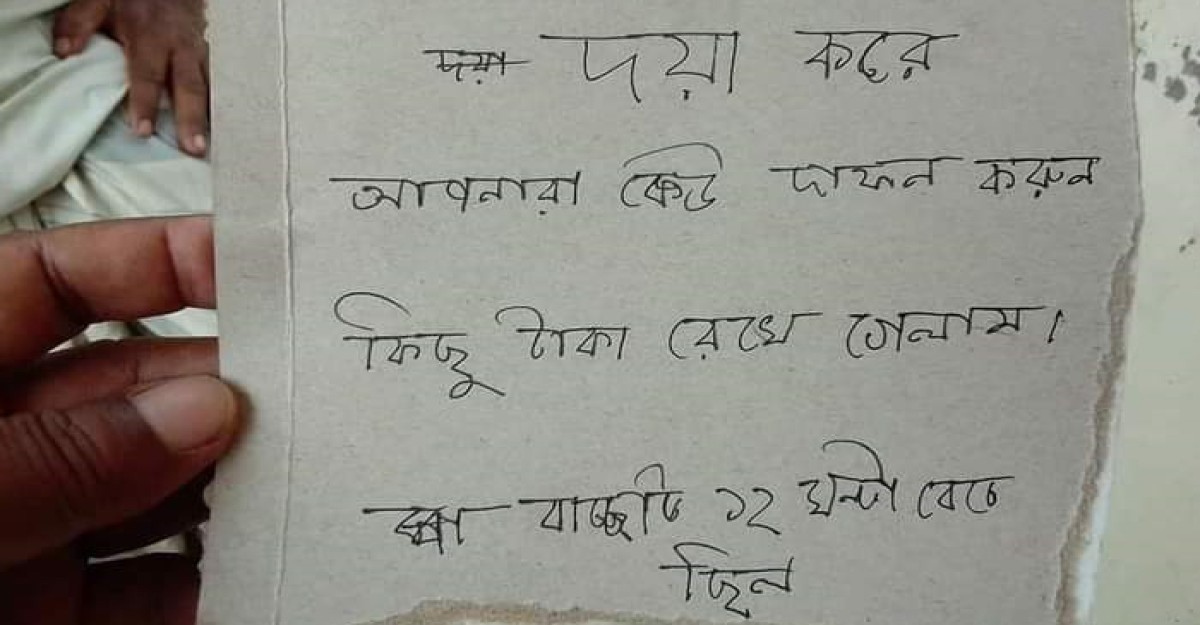 দয়া দয়া করে
আপনারা কেউ দাফন করুন
কিছু টাকা রেখে গেলাম।
বাচ্চাটি ১২ ঘন্টা বেচে
ছিল